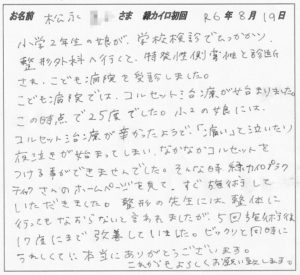 お名前 松永 さま 緑カイロ初回 R6年8月19日
小学2年生の娘が、学校検診でひっかかり
整形外科へ行くと、特発性側弯症と診断
され、こども病院を受診しました。
こども病院では、コルセット治療が始まりました。
この時点で25度でした。小2の娘には、
コルセット治療が辛かったようで、「痛い」と泣いたり
夜泣きが始まってしまい、なかなかコルセットを
つける事ができませんでした。そんな時 緑カイロプラク
ティックさんのホームページを見て、すぐ施術して
いただきました。整形の先生には、整体に
行ってもなおらないと言われましたが、5回施術後
17度にまで改善していました。ビックリと同時に
うれしくて、本当にありがとうございます。
これからもよろしくお願い致します。